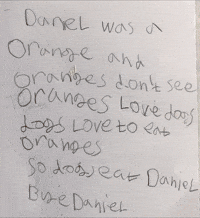 Daniel was a
Orange and
Oranges don't see
Oranges Love dogs
dogs Love to eat
Oranges
So dogs eat Daniel
Bye Daniel